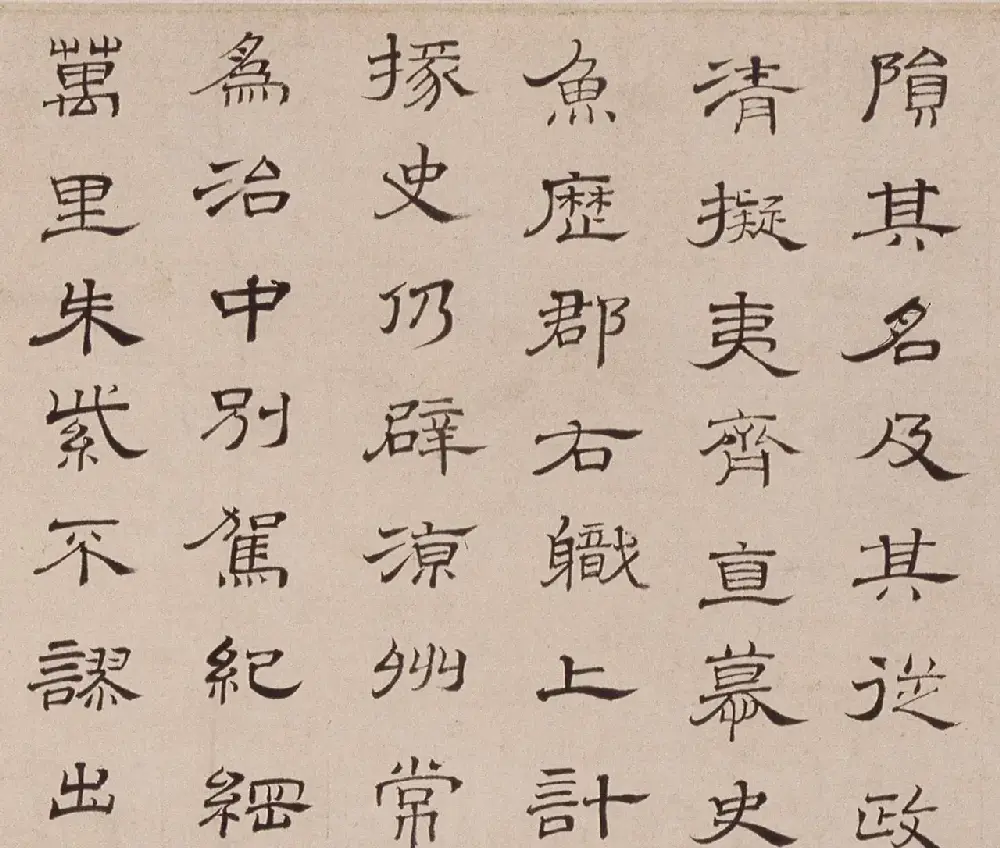 隕其名及其從政
清擬夷齊直慕史
魚歷郡右職上計
掾史仍辟涼州常
為治中別駕紀綱
萬里朱紫不謬出